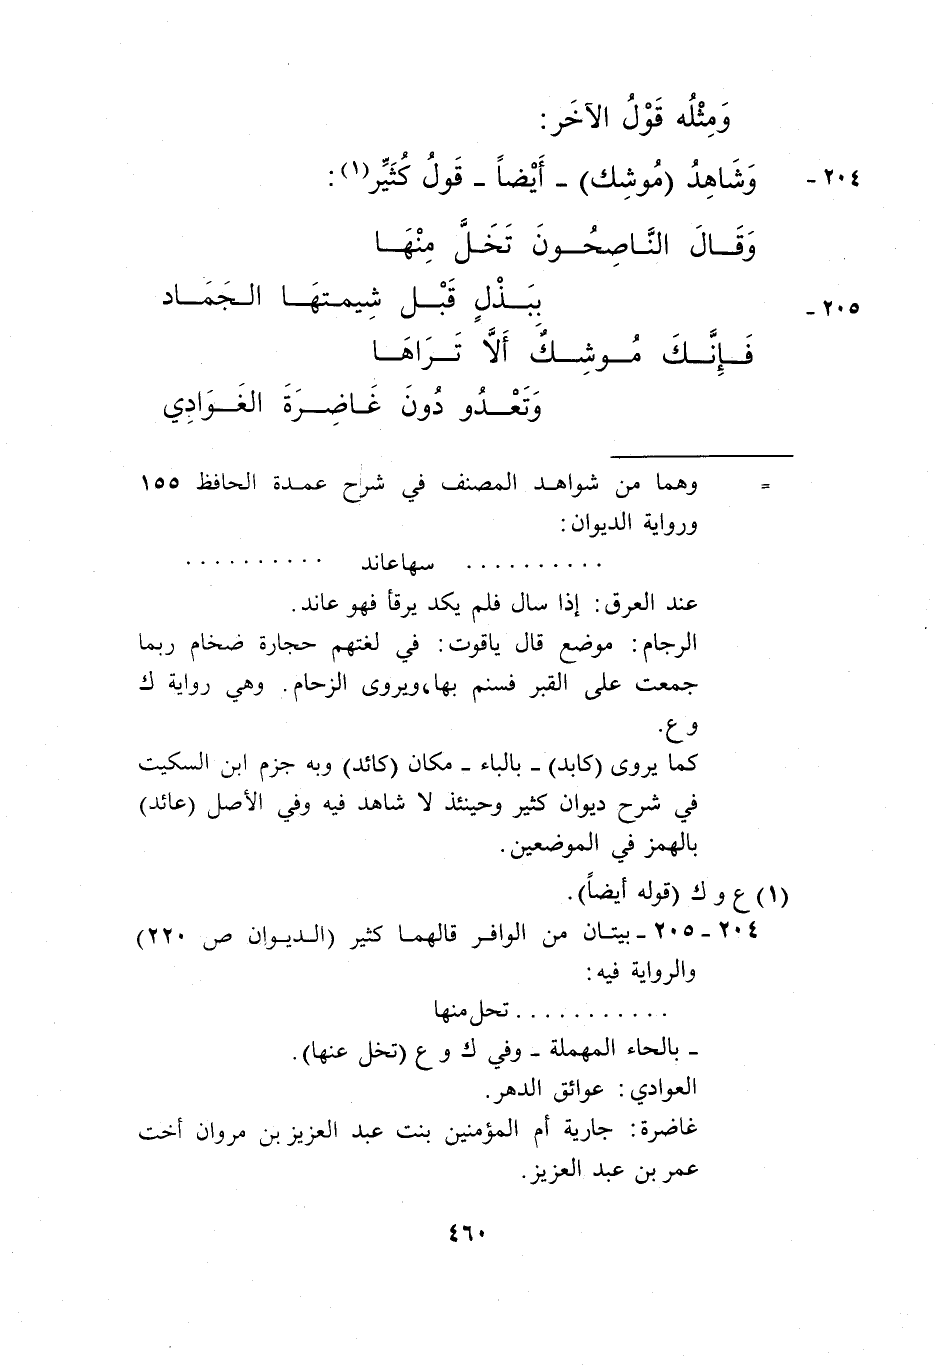 وَمِثْلُه قَوْلُ الآخَر:
٢٠٤ - وَشَاهِدُ (مُوشِك) - أَيْضاً - قَولُ كُثَيِّر(١):
وَقَـالَ النَّـاصِحُـونَ تَخَـلَّ مِنْهَـا
٢٠٥ - بِبَـذْلٍ قَبْـل شِيمـتهَـا الـجَمَـاد
فَـإِنَّـكَ مُـوشِـكٌ أَلَّا تَـرَاهَـا
وَتَعْـدُو دُونَ غَـاضِـرَةَ الغَـوَادِي
= وهما من شواهد المصنف في شرح عمدة الحافظ ١٥٥
ورواية الديوان:
.......... سهاعاند ..........
عند العرق: إذا سال فلم يكد يرقأ فهو عاند.
الرجام: موضع قال ياقوت: في لغتهم حجارة ضخام ربما
جمعت على القبر فسنم بها،ويروى الزحام. وهي رواية ك
و ع.
كما يروى (كابد) - بالباء - مكان (كائد) وبه جزم ابن السكيت
في شرح ديوان كثير وحينئذ لا شاهد فيه وفي الأصل (عائد)
بالهمز في الموضعين.
(١) ع و ك (قوله أيضاً).
٢٠٤ - ٢٠٥ - بيتان من الوافر قالهما كثير (الديوان ص ٢٢٠)
والرواية فيه:
........... تحل منها
- بالحاء المهملة - وفي ك و ع (تخل عنها).
العوادي: عوائق الدهر.
غاضرة: جارية أم المؤمنين بنت عبد العزيز بن مروان أخت
عمر بن عبد العزيز.
٤٦٠